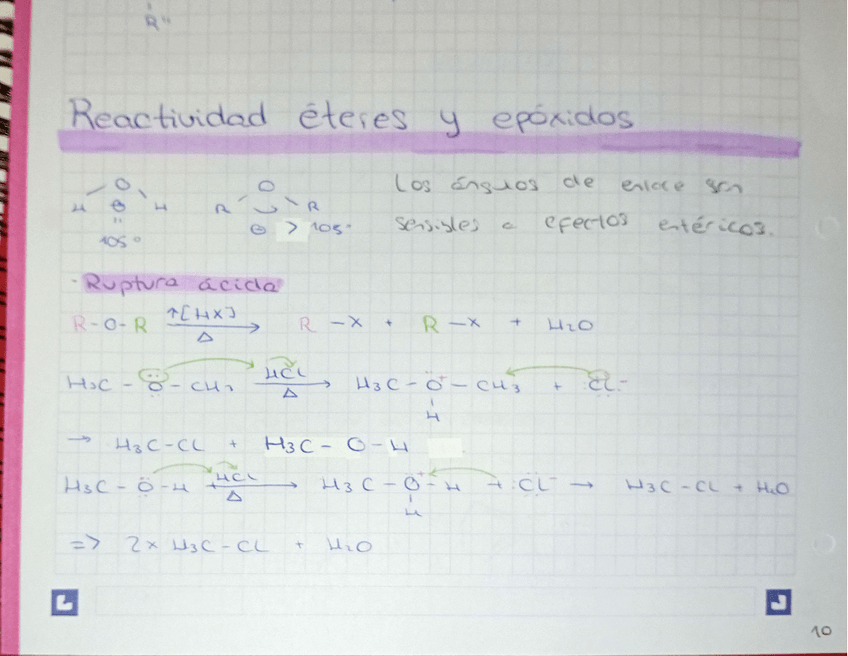 R"
Reactividad éteres y epóxidos
O O Los ángulos de enlace son
H ⊖ H R R
105° ⊖ > 105° sensibles a efectos estéricos.
· Ruptura ácida
R-O-R ↑[HX] Δ → R-X + R-X + H2O
H3C-Ö-CH3 HCl Δ → H3C-O⁺-CH3 + :Cl:⁻
H
→ H3C-CL + H3C-O-H
H3C-Ö-H + HCL Δ → H3C-O⁺-H + :CL⁻ → H3C-CL + H2O
H
=> 2x H3C-CL + H2O
10